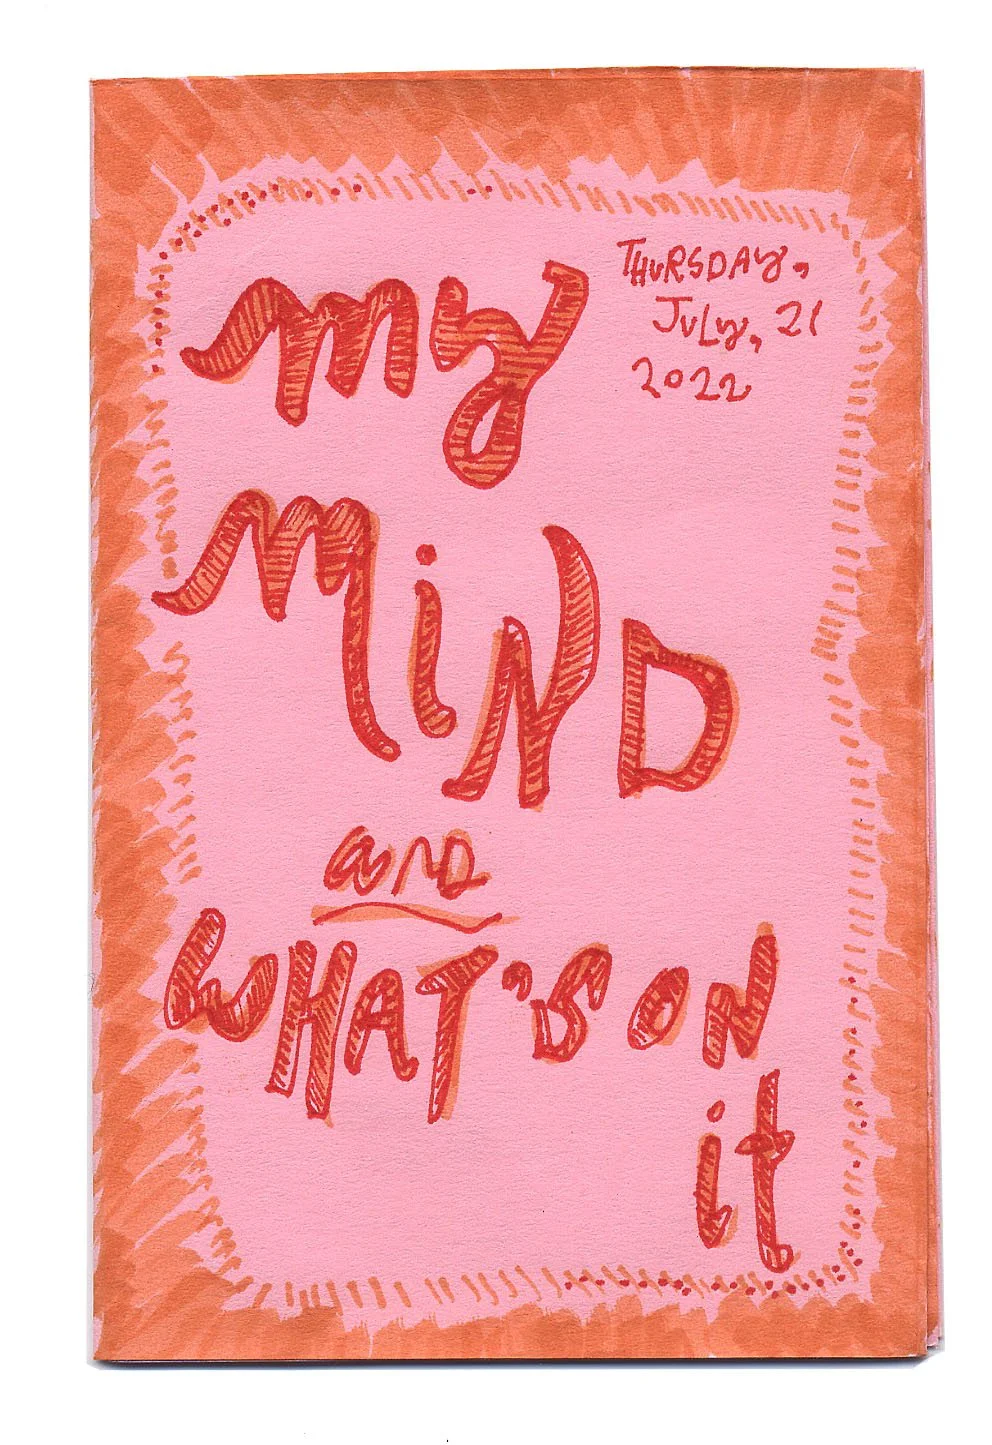 my
THURSDAy,
JuLy, 21
2022
MiND
and
WHAT'S ON
it